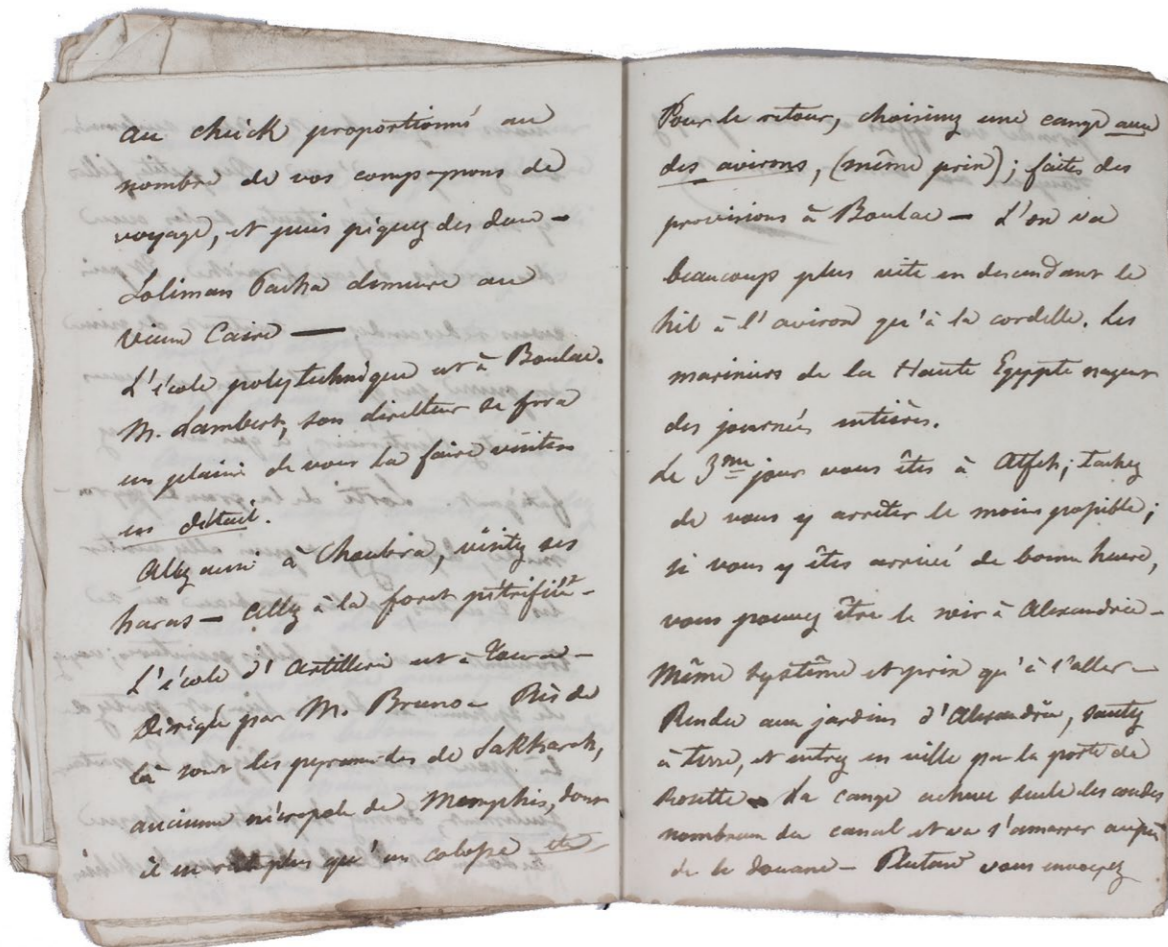 au cheick proportionné au
nombre de vos compagnons de
voyage, et puis piquez des deux —
Soliman Pacha demeure au
vieux Caire —
L'école polytechnique est à Boulac.
M. Lambert, son directeur se fera
un plaisir de vous la faire visiter
en détail.
Allez aussi à Choubra, visitez ses
haras — Allez à la foret pétrifiée —
L'école d'Artillerie est à Toura —
Dirigée par M. Bruno — Près de
là sont les pyramides de Sakharah,
ancienne nécropole de Memphis, dont
il ne reste plus qu'un colosse
Pour le retour, choisissez une cange avec
des avirons, (même prix) ; faites des
provisions à Boulac — L'on va
beaucoup plus vite en descendant le
Nil à l'aviron qu'à la cordelle. Les
mariniers de la Haute Egypte nagent
des journées entières.
Le 3me jour vous êtes à Atfeh ; tachez
de vous y arrêter le moins possible ;
si vous y êtes arrivé de bonne heure,
vous pouvez être le soir à Alexandrie —
Même système et prix qu'à l'aller —
Rendu aux jardins d'Alexandrie, sautez
à terre, et entrez en ville par la porte de
Rosette — La cange achève seule les coudes
nombreux du canal et va s'amarrer auprès
de la douane — Plutard vous envoyez